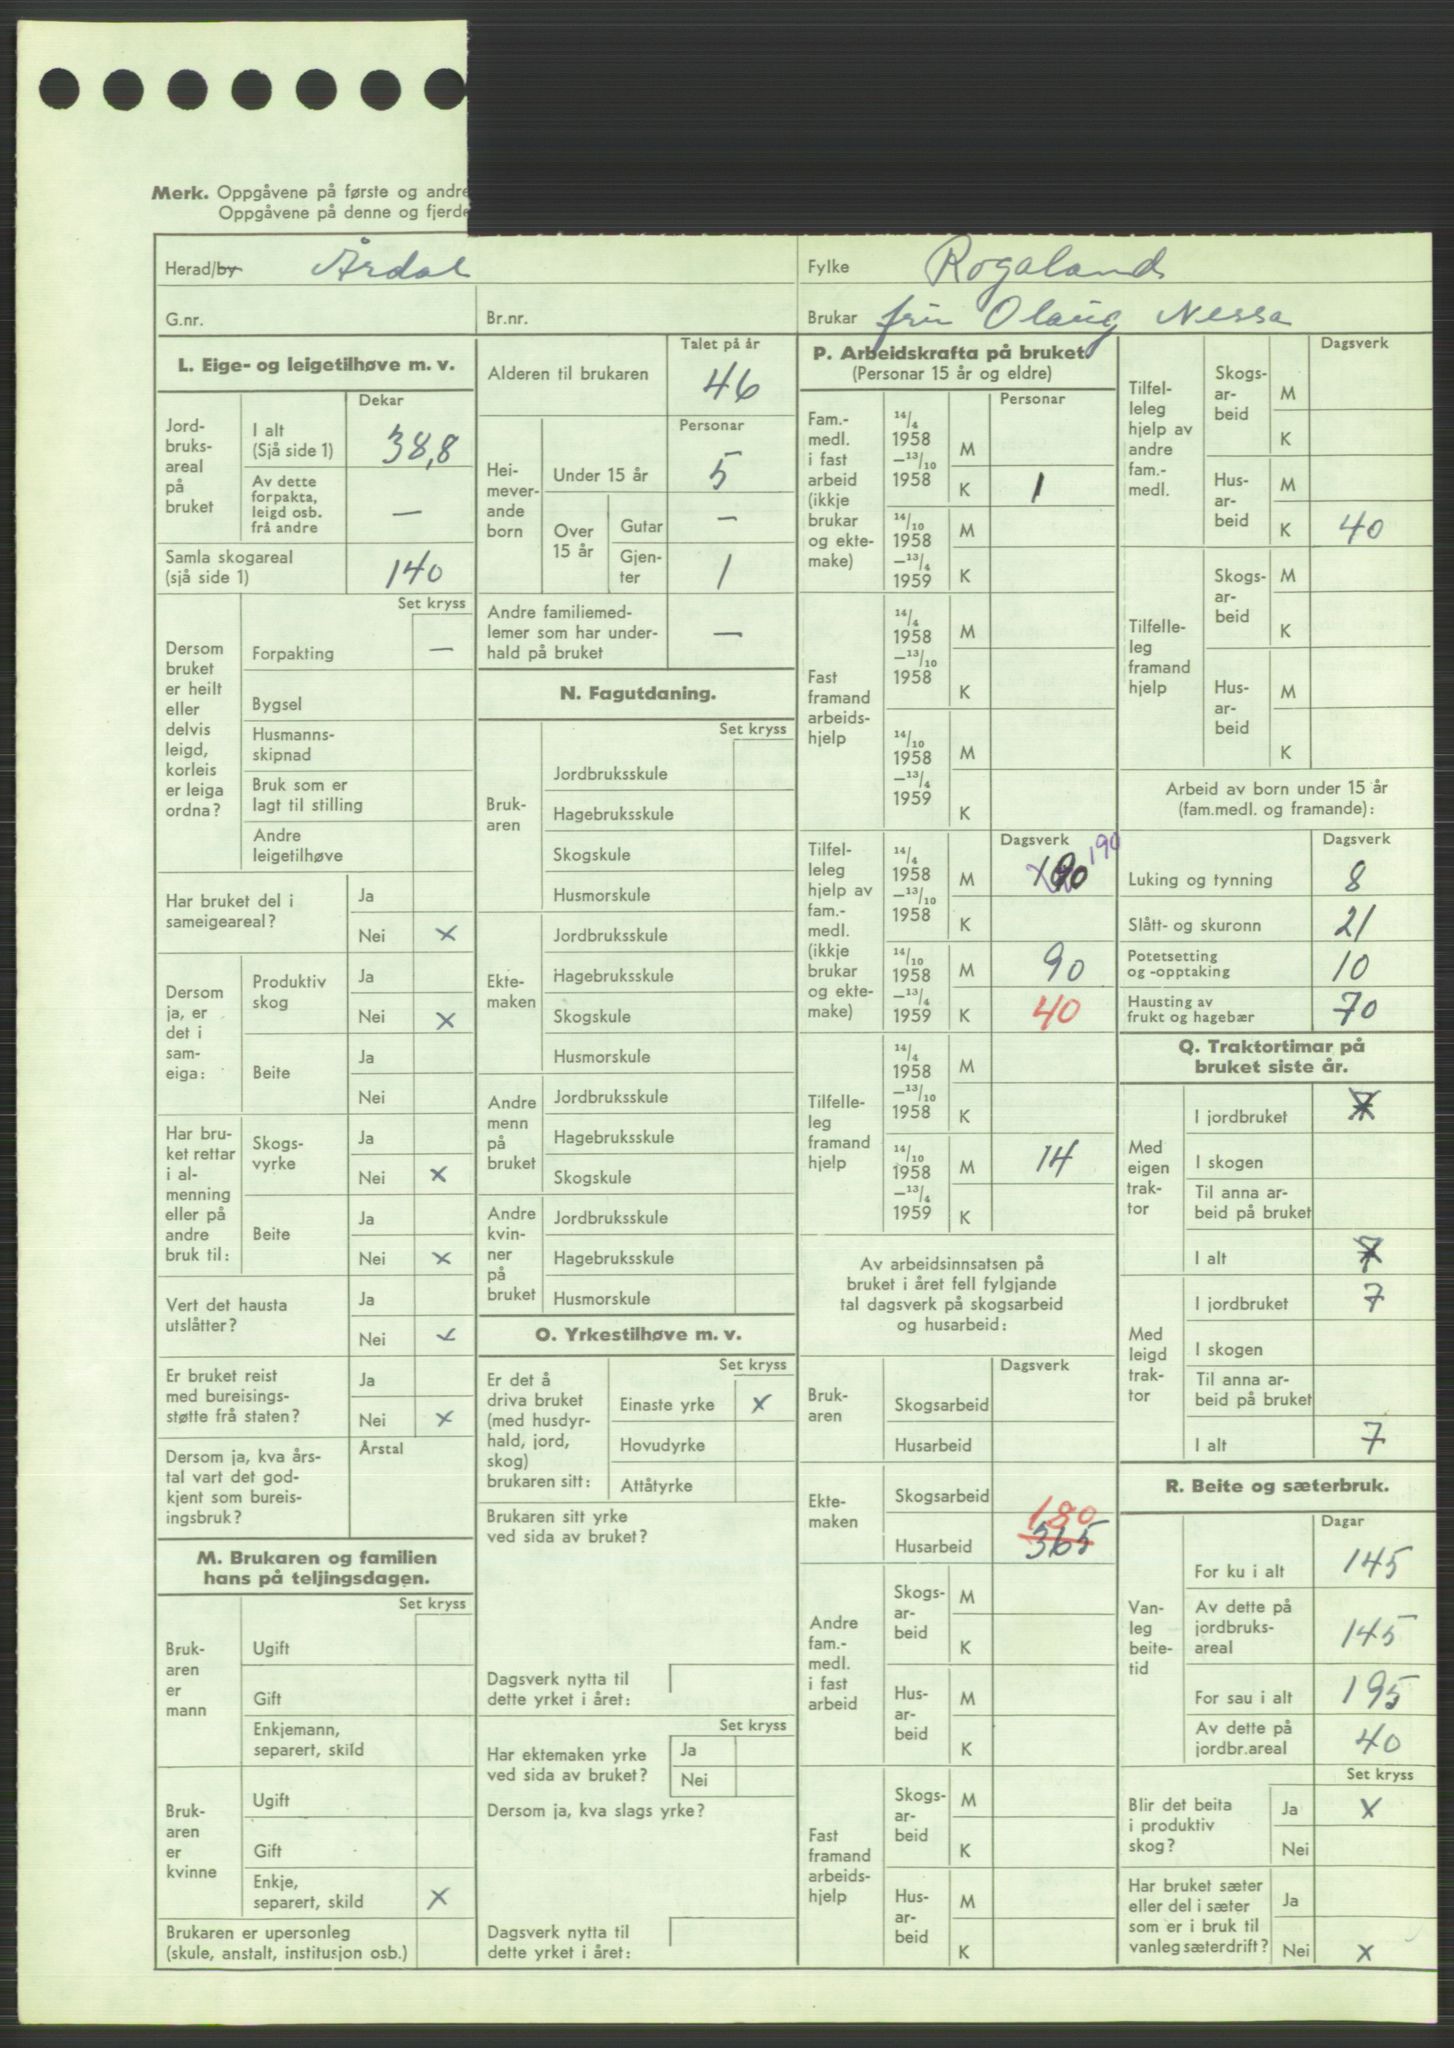 Merk. Oppgåvene på første og andre
Oppgåvene på denne og fjerde
Herad/by Årdal
Fylke Rogaland
G.nr.
Br.nr.
Brukar fru Olaug Nessa
L. Eige- og leigetilhøve m. v.
Dekar
Jord-
bruks-
areal
på
bruket
I alt
(Sjå side 1) 38,8
Av dette
forpakta,
leigd osb.
frå andre —
Samla skogareal
(sjå side 1) 140
Set kryss
Dersom
bruket
er heilt
eller
delvis
leigd,
korleis
er leiga
ordna?
Forpakting —
Bygsel
Husmanns-
skipnad
Bruk som er
lagt til stilling
Andre
leigetilhøve
Har bruket del i
sameigeareal?
Ja
Nei x
Dersom
ja, er
det i
sam-
eiga:
Produktiv
skog
Ja
Nei x
Beite
Ja
Nei
Har bru-
ket rettar
i al-
menning
eller på
andre
bruk til:
Skogs-
vyrke
Ja
Nei x
Beite
Ja
Nei x
Vert det hausta
utslåtter?
Ja
Nei x
Er bruket reist
med bureisings-
støtte frå staten?
Ja
Nei x
Dersom ja, kva års-
tal vart det god-
kjent som bureis-
ingsbruk?
Årstal
M. Brukaren og familien
hans på teljingsdagen.
Set kryss
Bruk-
aren
er
mann
Ugift
Gift
Enkjemann,
separert, skild
Bruk-
aren
er
kvinne
Ugift
Gift
Enkje,
separert, skild x
Brukaren er upersonleg
(skule, anstalt, institusjon osb.)
Talet på år
Alderen til brukaren 46
Personar
Hei-
mever-
ande
born
Under 15 år 5
Over
15 år
Gutar —
Gjen-
ter 1
Andre familiemed-
lemer som har under-
hald på bruket —
N. Fagutdaning.
Set kryss
Bruk-
aren
Jordbruksskule
Hagebruksskule
Skogskule
Husmorskule
Ekte-
maken
Jordbruksskule
Hagebruksskule
Skogskule
Husmorskule
Andre
menn
på
bruket
Jordbruksskule
Hagebruksskule
Skogskule
Andre
kvin-
ner
på
bruket
Jordbruksskule
Hagebruksskule
Husmorskule
O. Yrkestilhøve m. v.
Set kryss
Er det å
driva bruket
(med husdyr-
hald, jord,
skog)
brukaren sitt:
Einaste yrke x
Hovudyrke
Attåtyrke
Brukaren sitt yrke
ved sida av bruket?
Dagsverk nytta til
dette yrket i året:
Set kryss
Har ektemaken yrke
ved sida av bruket?
Ja
Nei
Dersom ja, kva slags yrke?
Dagsverk nytta til
dette yrket i året:
P. Arbeidskrafta på bruket.
(Personar 15 år og eldre)
Personar
Fam.-
medl.
i fast
arbeid
(ikkje
brukar
og ekte-
make)
14/4
1958
—13/10
1958
M
K 1
14/10
1958
—13/4
1959
M
K
Fast
framand
arbeids-
hjelp
14/4
1958
—13/10
1958
M
K
14/10
1958
—13/4
1959
M
K
Dagsverk
Tilfel-
leleg
hjelp av
fam.-
medl.
(ikkje
brukar
og ekte-
make)
14/4
1958
—13/10
1958
M 190 190
K
14/10
1958
—13/4
1959
M 90
K 40
Tilfelle-
leg
framand
hjelp
14/4
1958
—13/10
1958
M
K
14/10
1958
—13/4
1959
M 14
K
Av arbeidsinnsatsen på
bruket i året fell fylgjande
tal dagsverk på skogsarbeid
og husarbeid:
Dagsverk
Bruk-
aren
Skogsarbeid
Husarbeid
Ekte-
maken
Skogsarbeid
180
Husarbeid 365
Andre
fam.-
medl.
i fast
arbeid
Skogs-
ar-
beid
M
K
Hus-
ar-
beid
M
K
Fast
framand
arbeids-
hjelp
Skogs-
ar-
beid
M
K
Hus-
ar-
beid
M
K
Dagsverk
Tilfel-
leleg
hjelp av
andre
fam.-
medl.
Skogs-
ar-
beid
M
K
Hus-
ar-
beid
M
K 40
Tilfelle-
leg
framand
hjelp
Skogs-
ar-
beid
M
K
Hus-
ar-
beid
M
K
Arbeid av born under 15 år
(fam.medl. og framande):
Dagsverk
Luking og tynning 8
Slått- og skuronn 21
Potetsetting
og -opptaking 10
Hausting av
frukt og hagebær 70
Q. Traktortimar på
bruket siste år.
Med
eigen
trak-
tor
I jordbruket 7
I skogen
Til anna ar-
beid på bruket
I alt 7
Med
leigd
trak-
tor
I jordbruket 7
I skogen
Til anna ar-
beid på bruket
I alt 7
R. Beite og sæterbruk.
Dagar
Van-
leg
beite-
tid
For ku i alt 145
Av dette på
jordbruks-
areal 145
For sau i alt 195
Av dette på
jordbr.areal 40
Set kryss
Blir det beita
i produktiv
skog?
Ja x
Nei
Har bruket sæter
eller del i sæter
som er i bruk til
vanleg sæterdrift?
Ja
Nei x